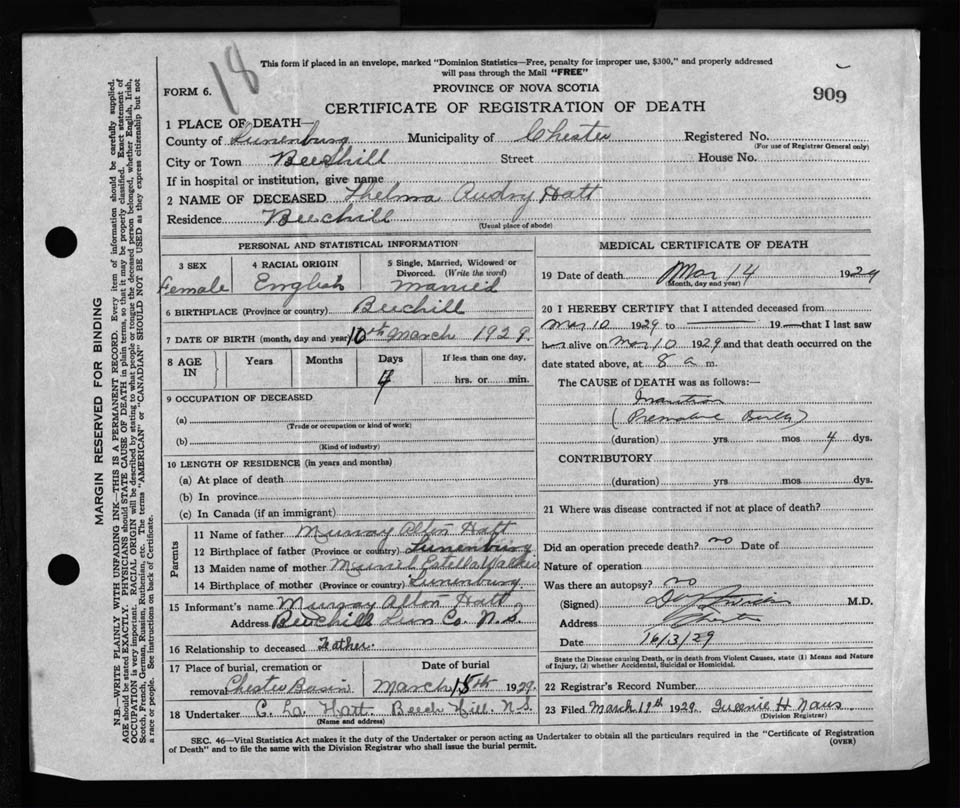 18
This form if placed in an envelope, marked "Dominion Statistics—Free, penalty for improper use, $300," and properly addressed
will pass through the Mail "FREE"
FORM 6.
PROVINCE OF NOVA SCOTIA
909
CERTIFICATE OF REGISTRATION OF DEATH
1 PLACE OF DEATH—
County of Lunenburg Municipality of Chester Registered No.
(For use of Registrar General only)
City or Town Beechill Street House No.
If in hospital or institution, give name
2 NAME OF DECEASED Thelma Audry Hatt
Residence Beechill
(Usual place of abode)
PERSONAL AND STATISTICAL INFORMATION
3 SEX 4 RACIAL ORIGIN 5 Single, Married, Widowed or
Divorced. (Write the word)
Female English Married
6 BIRTHPLACE (Province or country) Beechill
7 DATE OF BIRTH (month, day and year) 10th March 1929.
8 AGE IN Years Months Days If less than one day,
4 hrs. or min.
9 OCCUPATION OF DECEASED
(a)
(Trade or occupation or kind of work)
(b)
(Kind of industry)
10 LENGTH OF RESIDENCE (in years and months)
(a) At place of death
(b) In province
(c) In Canada (if an immigrant)
Parents
11 Name of father Murray Alton Hatt
12 Birthplace of father (Province or country) Lunenburg
13 Maiden name of mother Estella
14 Birthplace of mother (Province or country) Lunenburg
15 Informant's name Murray Alton Hatt
Address Beechill Lun Co. N.S.
16 Relationship to deceased Father.
17 Place of burial, cremation or Date of burial
removal Chester Basin March 15th 1929.
18 Undertaker Hatt Beech Hill. N.S.
(Name and address)
MEDICAL CERTIFICATE OF DEATH
19 Date of death Mar 14 1929
(Month, day and year)
20 I HEREBY CERTIFY that I attended deceased from
Mar 10 1929 to — 19— that I last saw
her alive on Mar 10 1929 and that death occurred on the
date stated above, at 8 a m.
The CAUSE OF DEATH was as follows:—
Inanition
(Premature Birth)
(duration) yrs mos 4 dys.
CONTRIBUTORY
(duration) yrs mos dys.
21 Where was disease contracted if not at place of death?
Did an operation precede death? no Date of
Nature of operation
Was there an autopsy? no
(Signed) M.D.
Address Chester
Date 16/3/29
State the Disease causing Death, or in death from Violent Causes, state (1) Means and Nature
of Injury, (2) whether Accidental, Suicidal or Homicidal.
22 Registrar's Record Number
23 Filed March 19th 1929
(Division Registrar)
SEC. 46—Vital Statistics Act makes it the duty of the Undertaker or person acting as Undertaker to obtain all the particulars required in the "Certificate of Registration
of Death" and to file the same with the Division Registrar who shall issue the burial permit.
(OVER)
MARGIN RESERVED FOR BINDING
N.B.—WRITE PLAINLY WITH UNFADING INK—THIS IS A PERMANENT RECORD. Every item of information should be carefully supplied.
AGE should be stated EXACTLY. PHYSICIANS should STATE CAUSE OF DEATH in plain terms, so that it may be properly classified. Exact statement of
OCCUPATION is very important. RACIAL ORIGIN will be described by stating to what people or tongue the deceased person belonged, whether English, Irish,
Scotch, French, German, Russian, Ruthenian, etc. The terms "AMERICAN" or "CANADIAN" SHOULD NOT BE USED as they express citizenship but not
a race or people. See instructions on back of Certificate.